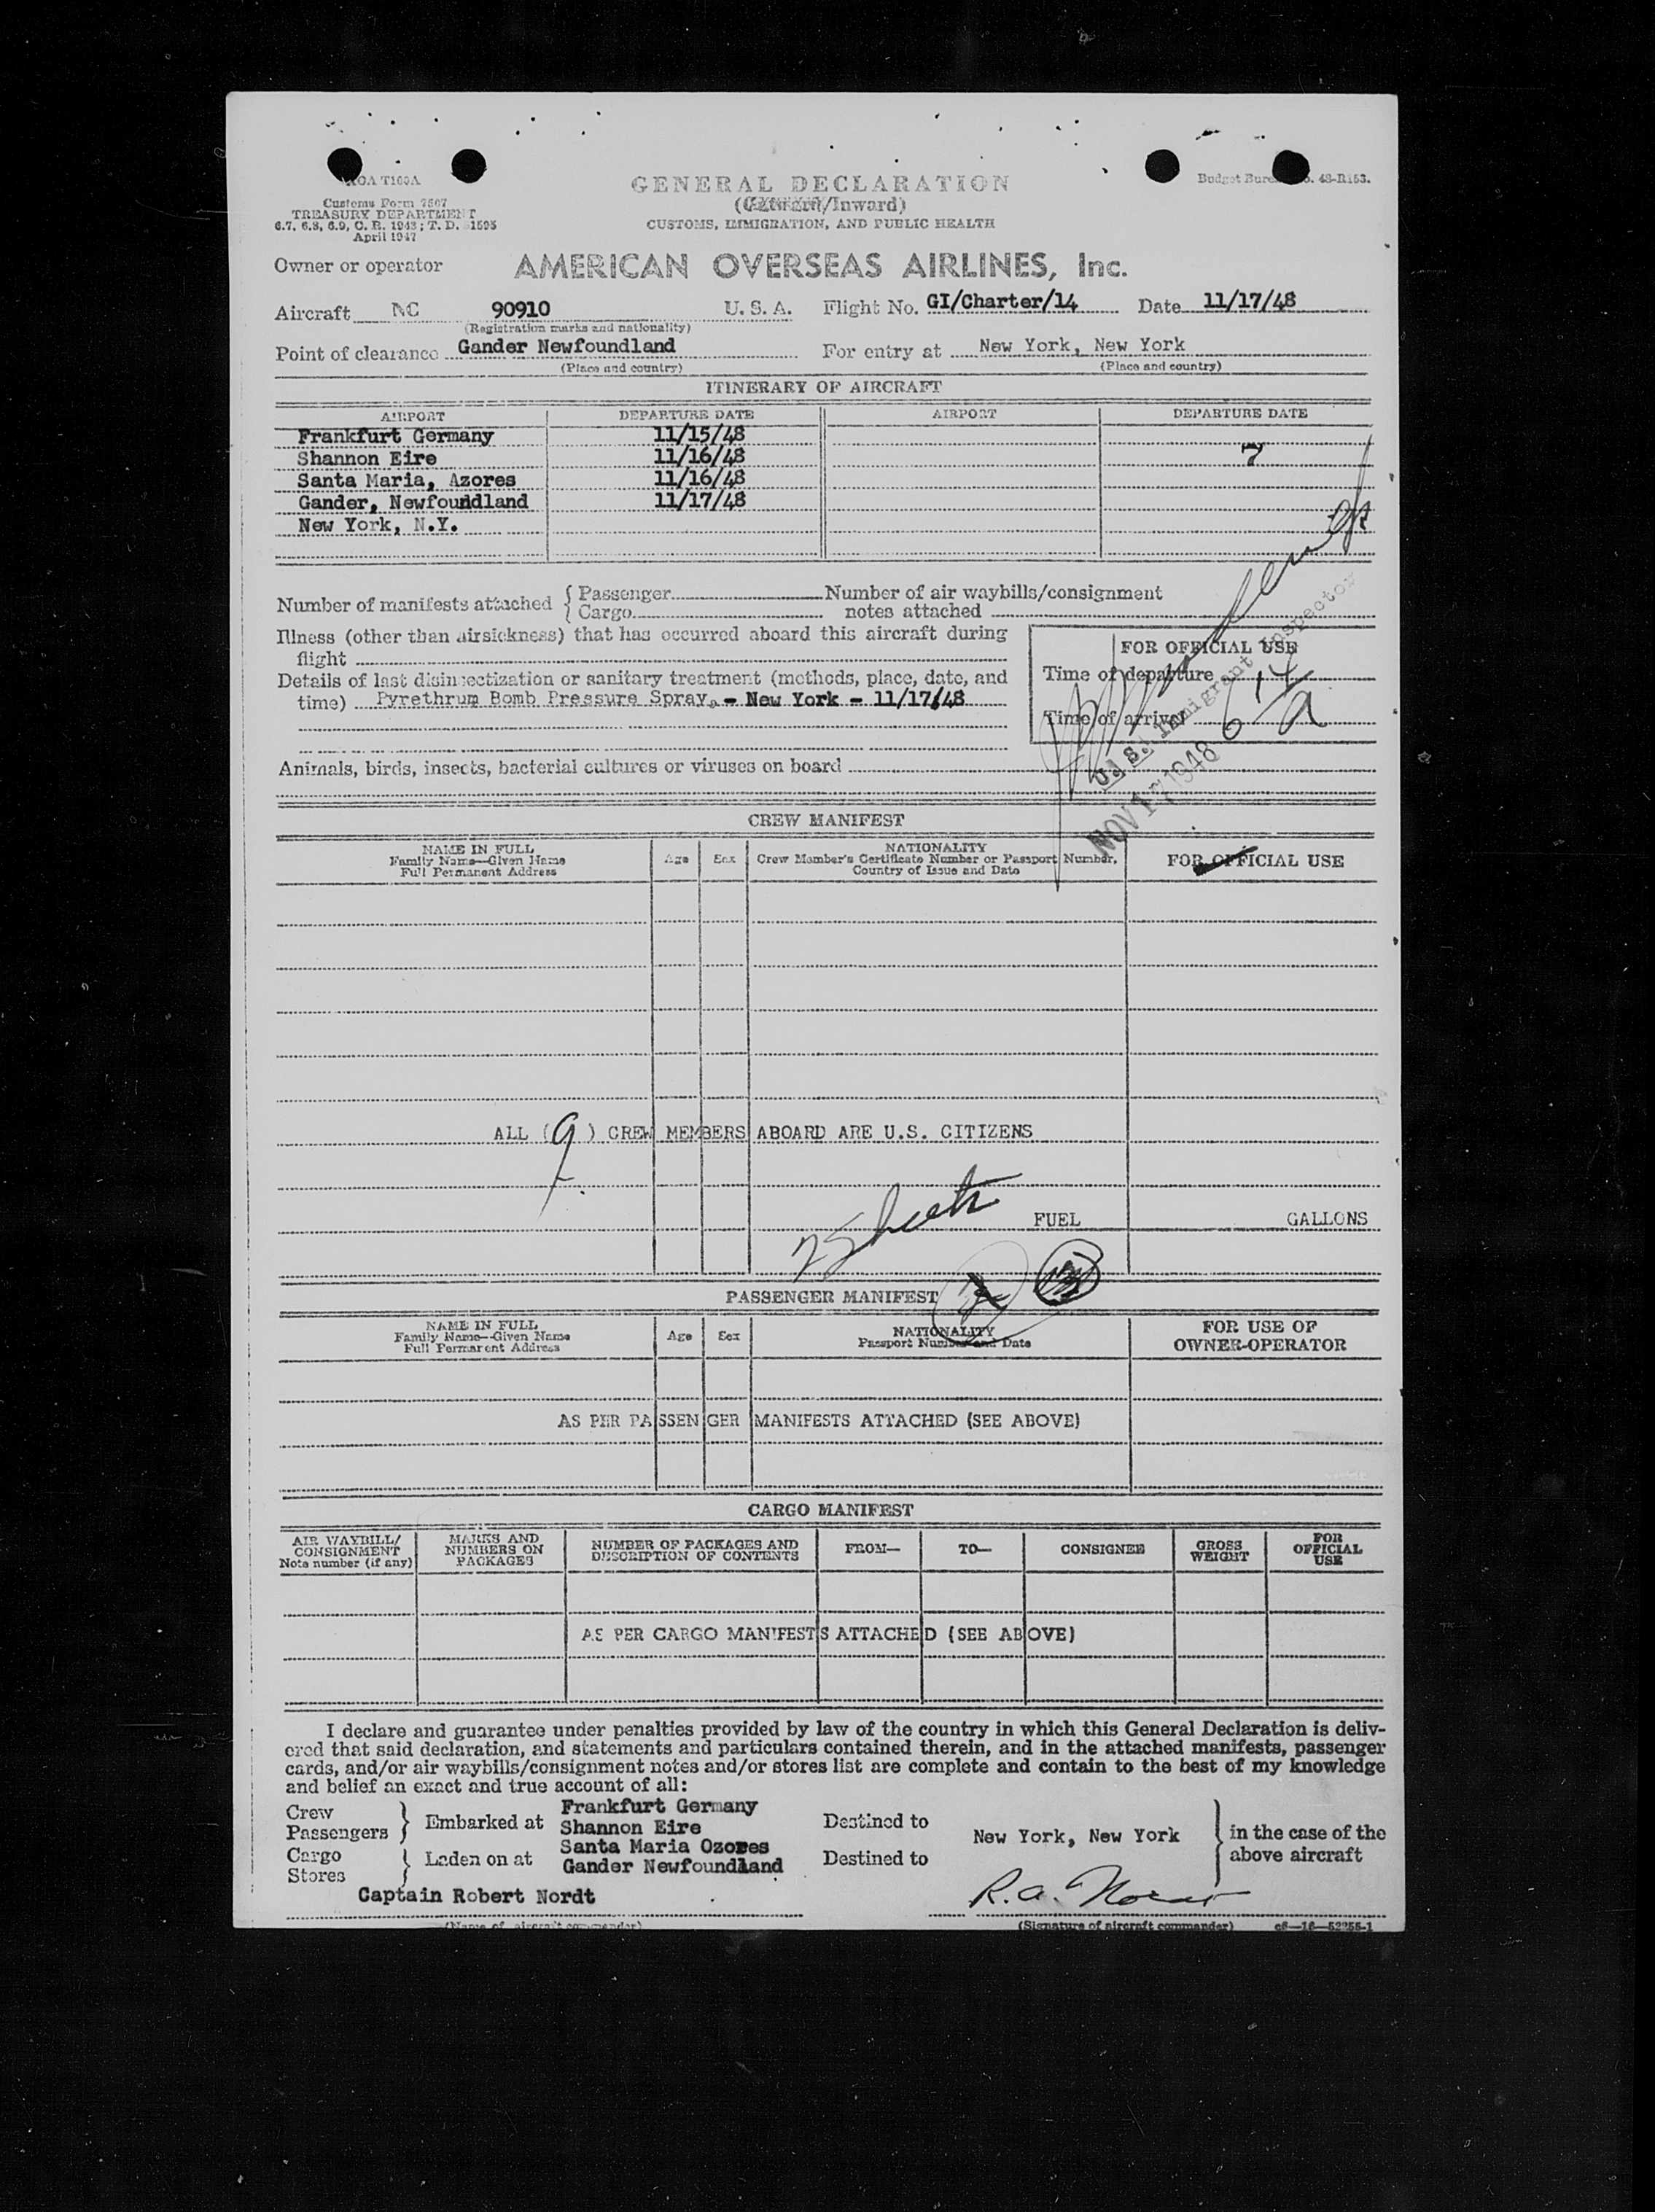 AOA T100A
Customs Form 7507
TREASURY DEPARTMENT
6.7, 6.8, 6.9, C. R. 1943; T. D. 51595
April 1947
GENERAL DECLARATION
(Outward/Inward)
CUSTOMS, IMMIGRATION, AND PUBLIC HEALTH
Budget Bureau No. 48-R153.
Owner or operator AMERICAN OVERSEAS AIRLINES, Inc.
Aircraft NC 90910 U. S. A. Flight No. GI/Charter/14 Date 11/17/48
(Registration marks and nationality)
Point of clearance Gander Newfoundland For entry at New York, New York
(Place and country) (Place and country)
ITINERARY OF AIRCRAFT
AIRPORT DEPARTURE DATE AIRPORT DEPARTURE DATE
Frankfurt Germany 11/15/48
Shannon Eire 11/16/48 7
Santa Maria, Azores 11/16/48
Gander, Newfoundland 11/17/48
New York, N.Y.
Number of manifests attached { Passenger Number of air waybills/consignment
Cargo notes attached
Illness (other than airsickness) that has occurred aboard this aircraft during
flight
Details of last disinsectization or sanitary treatment (methods, place, date, and
time) Pyrethrum Bomb Pressure Spray. - New York - 11/17/48
FOR OFFICIAL USE
Time of departure
Time of arrival
U. S. Immigrant Inspector
NOV 17 1948
Animals, birds, insects, bacterial cultures or viruses on board
CREW MANIFEST
NAME IN FULL
Family Name—Given Name
Full Permanent Address
Age Sex
NATIONALITY
Crew Member's Certificate Number or Passport Number,
Country of Issue and Date
FOR OFFICIAL USE
ALL (9) CREW MEMBERS ABOARD ARE U.S. CITIZENS
FUEL GALLONS
PASSENGER MANIFEST
NAME IN FULL
Family Name—Given Name
Full Permanent Address
Age Sex
NATIONALITY
Passport Number and Date
FOR USE OF
OWNER-OPERATOR
AS PER PASSENGER MANIFESTS ATTACHED (SEE ABOVE)
CARGO MANIFEST
AIR WAYBILL/
CONSIGNMENT
Note number (if any)
MARKS AND
NUMBERS ON
PACKAGES
NUMBER OF PACKAGES AND
DESCRIPTION OF CONTENTS
FROM— TO— CONSIGNEE
GROSS
WEIGHT
FOR
OFFICIAL
USE
AS PER CARGO MANIFESTS ATTACHED (SEE ABOVE)
I declare and guarantee under penalties provided by law of the country in which this General Declaration is deliv-
ered that said declaration, and statements and particulars contained therein, and in the attached manifests, passenger
cards, and/or air waybills/consignment notes and/or stores list are complete and contain to the best of my knowledge
and belief an exact and true account of all:
Crew
Passengers } Embarked at
Cargo
Stores } Laden on at
Frankfurt Germany
Shannon Eire
Santa Maria Ozores
Gander Newfoundland
Destined to
Destined to
New York, New York
} in the case of the
above aircraft
Captain Robert Nordt
R. A. Nordt
(Name of aircraft commander) (Signature of aircraft commander) c6—16—52255-1